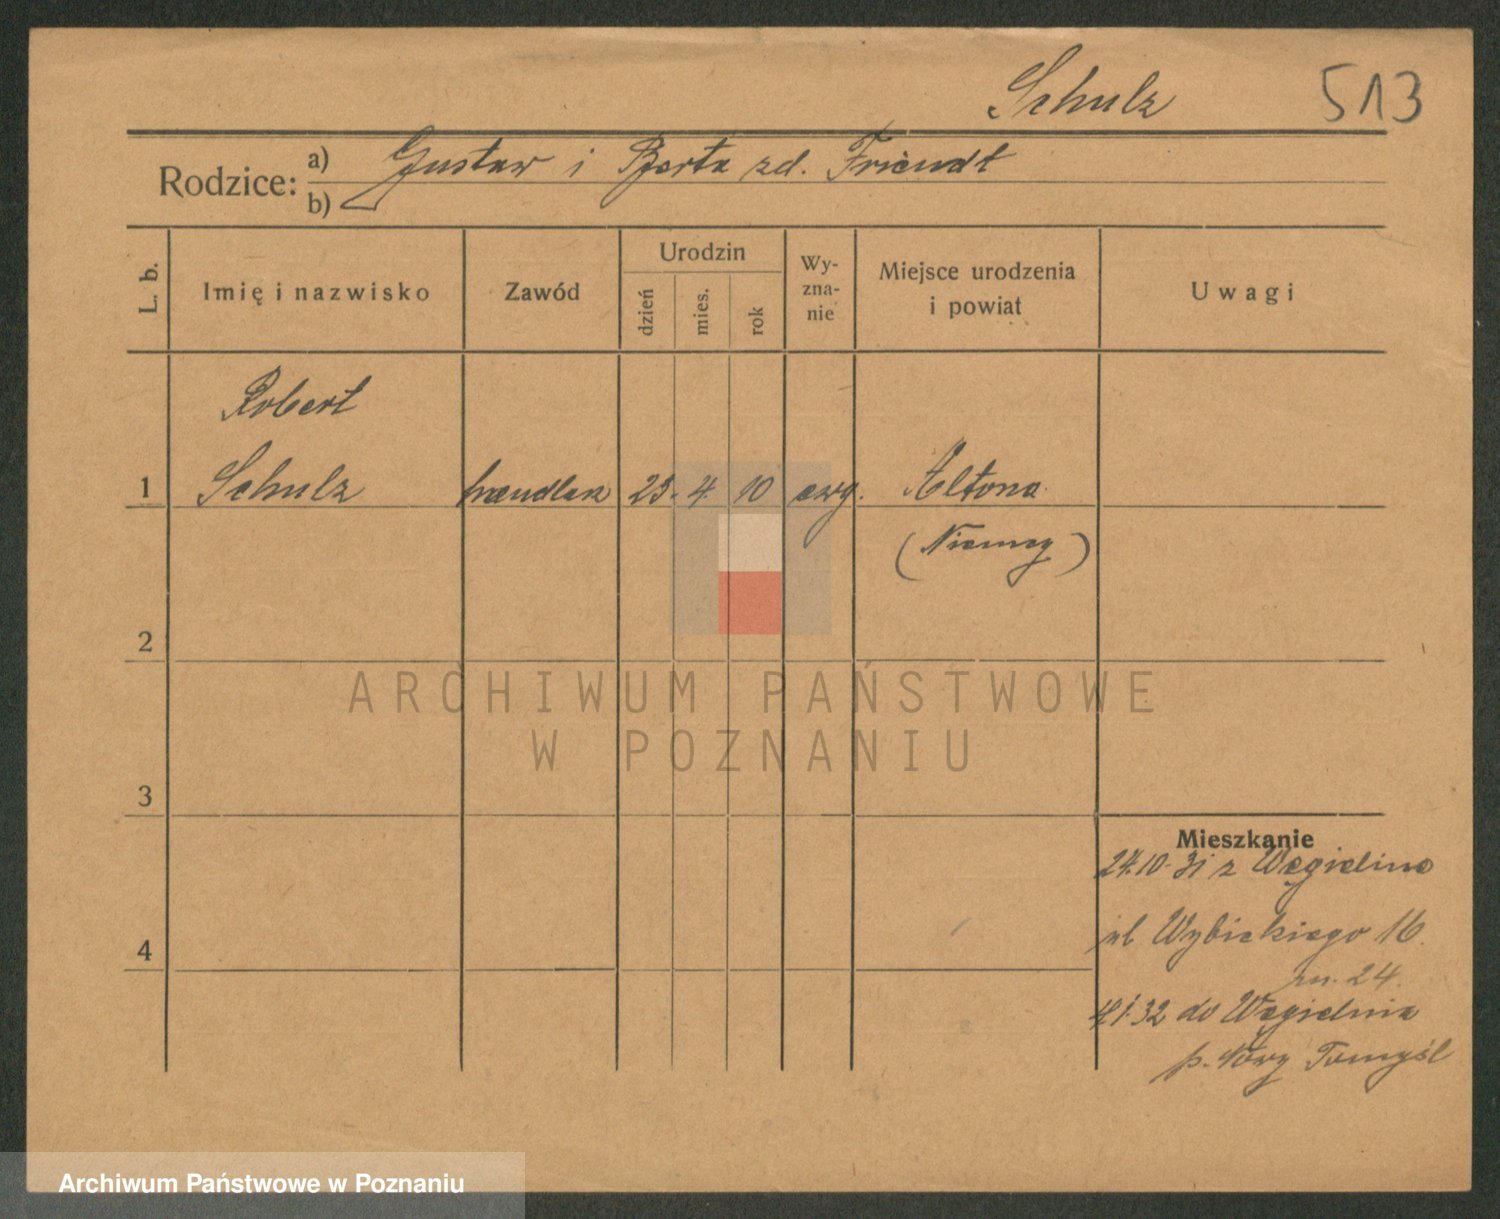 Schulz 513
Rodzice: a) Gustaw i Berta zd. Friendt
b)
L. b. Imię i nazwisko Zawód Urodzin Wy-zna-nie Miejsce urodzenia i powiat Uwagi
dzień mies. rok
Robert
1 Schulz handlarz 23. 4. 10 ewg. Altona
(Niemcy)
2
ARCHIWUM PAŃSTWOWE
W POZNANIU
3
Mieszkanie
24.10.31 z Węgielina
4 ul Wybickiego 16.
24.
1.32 do Węgielnia
p. Nowy Tomyśl
Archiwum Państwowe w Poznaniu